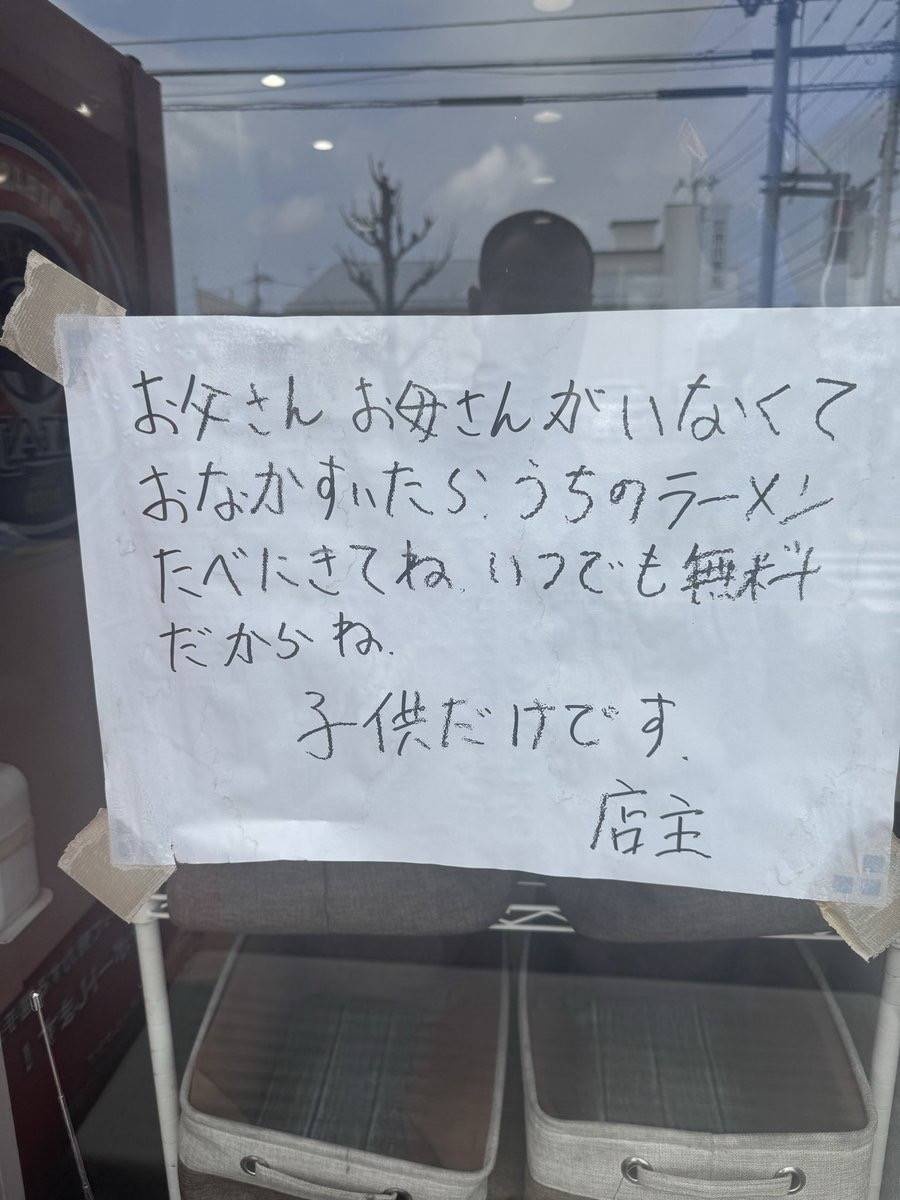 お父さん お母さんがいなくて
おなかすいたら、うちのラーメン
たべにきてね、いつでも無料
だからね、
子供だけです、
店主